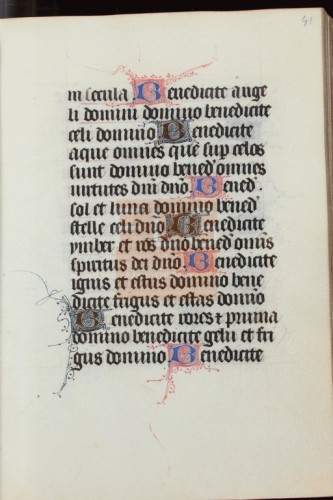 41
in secula. Benedicite ange
li domini domino benedicite
celi domino Benedicite
aque omnes que sup celos
sunt domino bened' omnes
virtutes dni dno. Bened'.
sol et luna domino bened'
stelle celi dno Benedicite
ymber et ros dno bened' oms
spiritus dei dno. Benedicite
ignis et estus domino bene
dicite frigus et estas domino
Benedicite rores et pruina
domino benedicite gelu et fri
gus domino. Benedicite